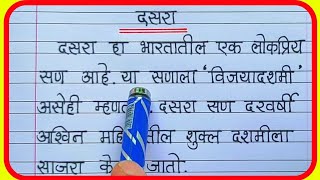 दसरा
दसरा हा भारतातील एक लोकप्रिय
सण आहे. या सणाला 'विजयादशमी'
असेही दसरा सण दरवर्षी
आश्विन शुक्ल दशमीला
साजरा जातो.